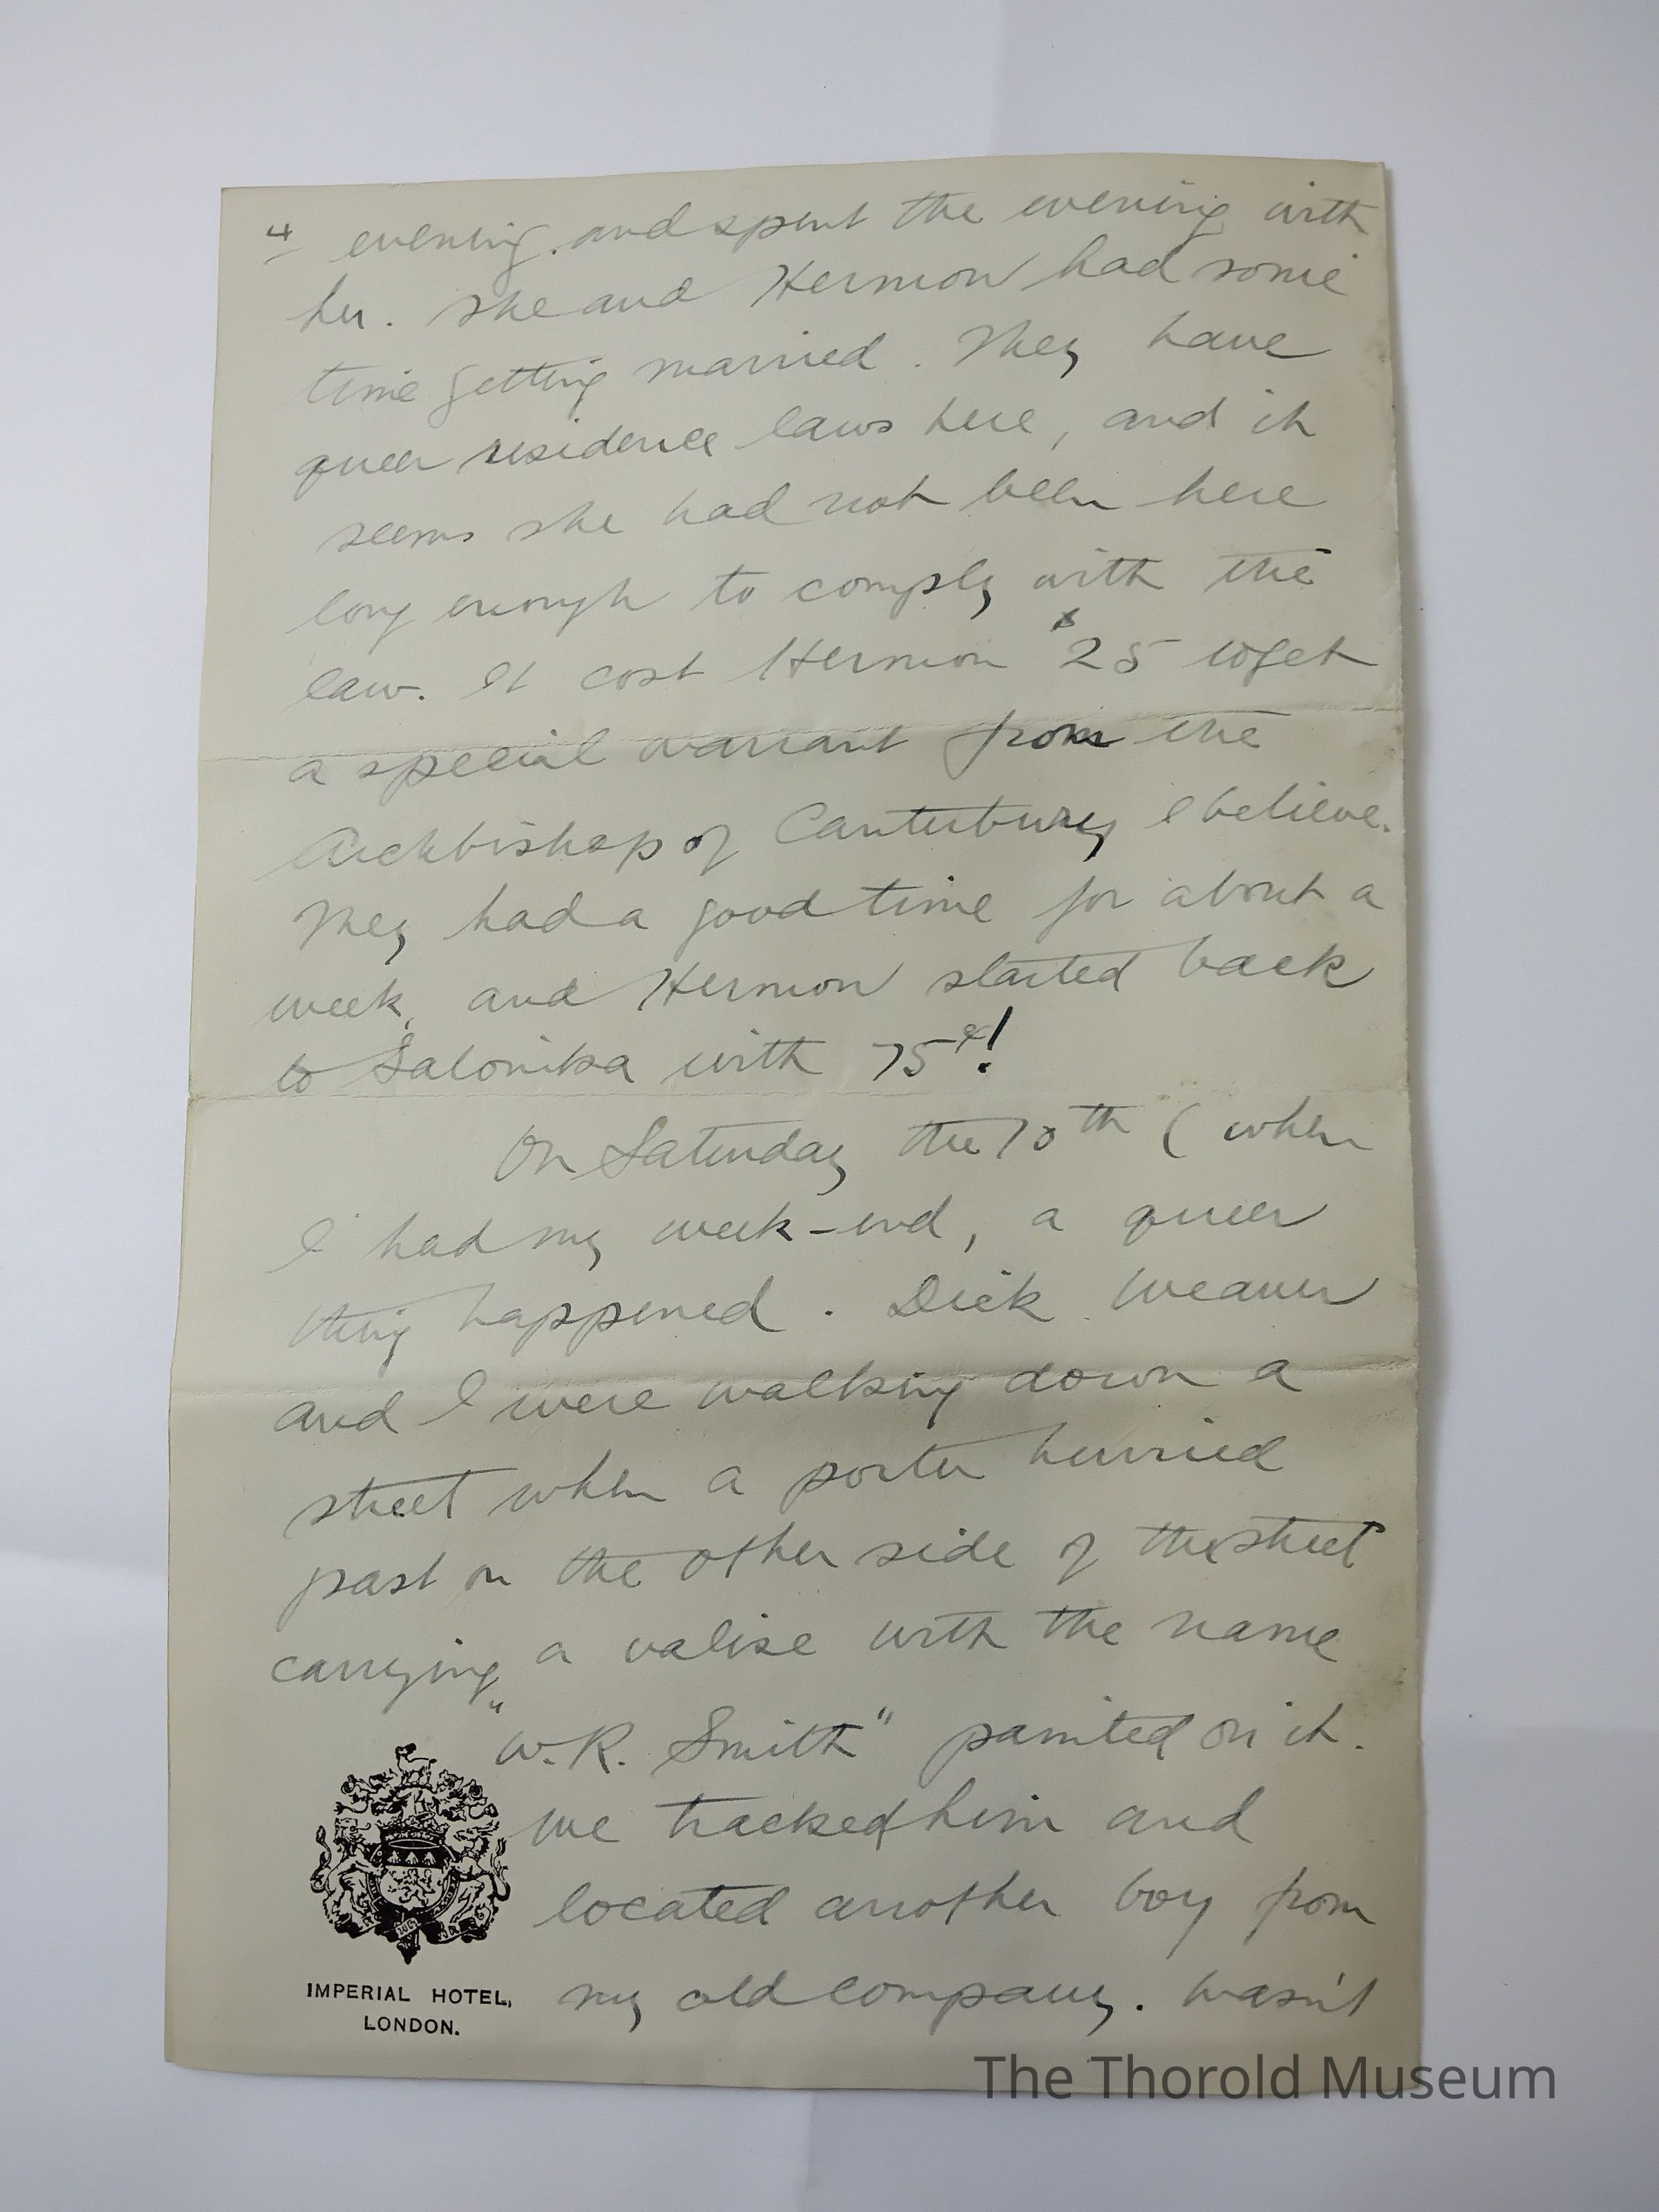 4 evening. and spent the evening with
her. She and Hermon had some
time getting married. They have
queer residence laws here, and it
seems she had not been here
long enough to comply with the
law. It cost Hermon $25 to get
a special warrant from the
Archbishop of Canterbury I believe.
They had a good time for about a
week, and Hermon started back
to Salonika with 75¢!
On Saturday the 10th (when
I had my week-end, a queer
thing happened. Dick Weaver
and I were walking down a
street when a porter hurried
past on the other side of the street
carrying a valise with the name
"W.R. Smith" painted on it.
We tracked him and
located another boy from
my old company. Wasn't
IMPERIAL HOTEL,
LONDON.
The Thorold Museum